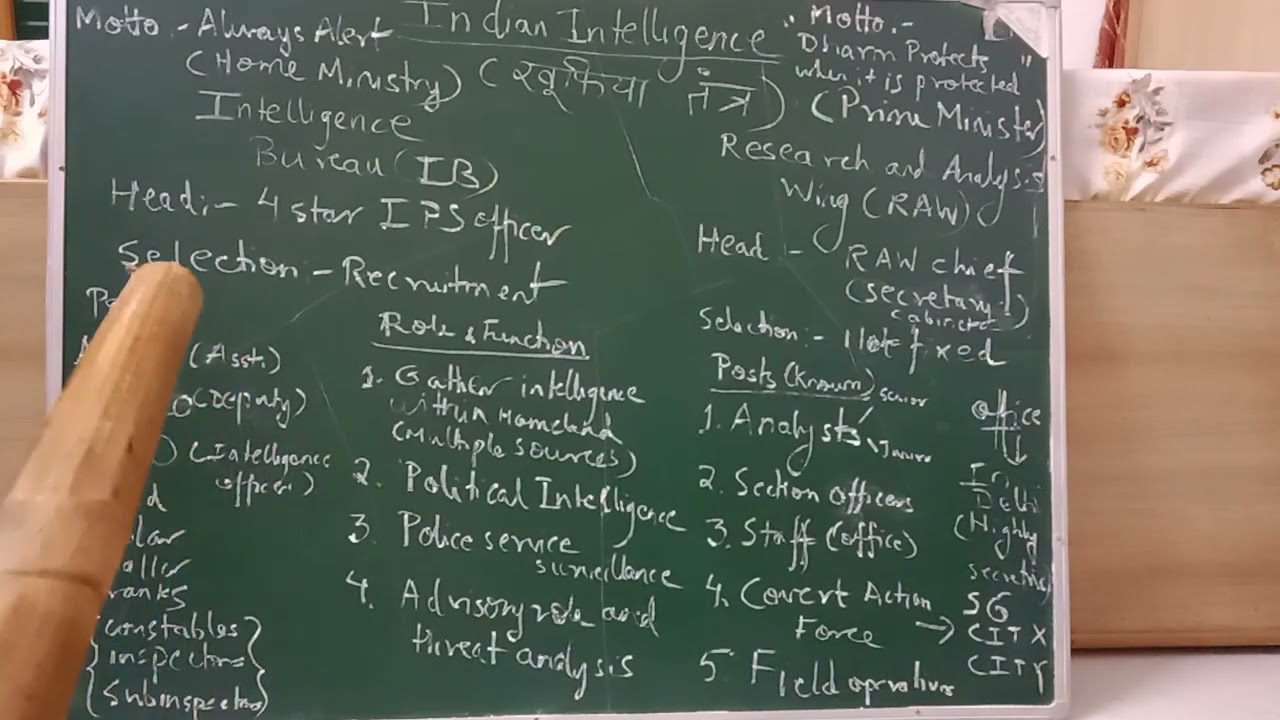 Motto :- Always Alert
(Home Ministry)
Intelligence
Bureau (IB)
Indian Intelligence
(खुफिया तंत्र)
" Motto :-
Dharm Protects "
when it is protected
(Prime Minister)
Research and Analysis
Wing (RAW)
Head :- 4 star IPS officer
Selection :- Recruitment
(Asst.)
(Deputy)
(Intelligence
officer)
ranks
{constables}
inspectors
{Subinspectors)
Role & Function
1. Gather intelligence
within Homeland
(Multiple sources)
2. Political Intelligence
3. Police service
surveillance
4. Advisory role and
threat analysis
Head :- RAW chief
(secretary
cabinet)
Selection :- Not fixed
Posts (Known)
1. Analysts
Senior
2. Section officers
3. Staff (office)
4. Covert Action
Force →
5. Field operations
office
↓
In
Delhi
(Highly
SG
CIT X